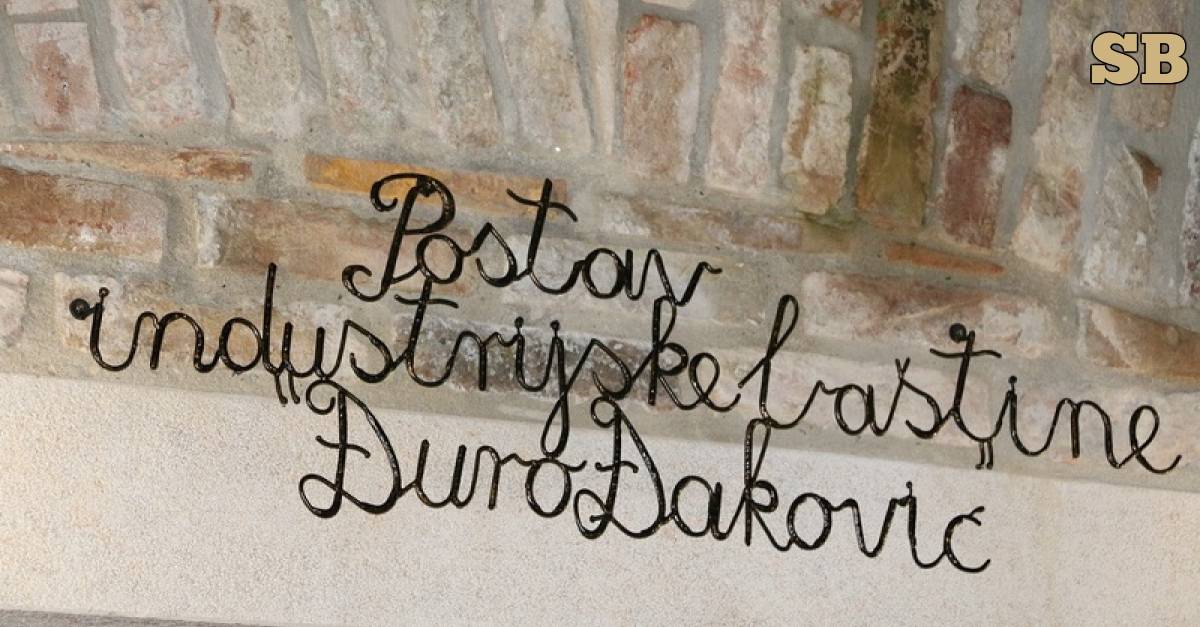 SB
Postav
industrijske baštine
Đuro Đaković